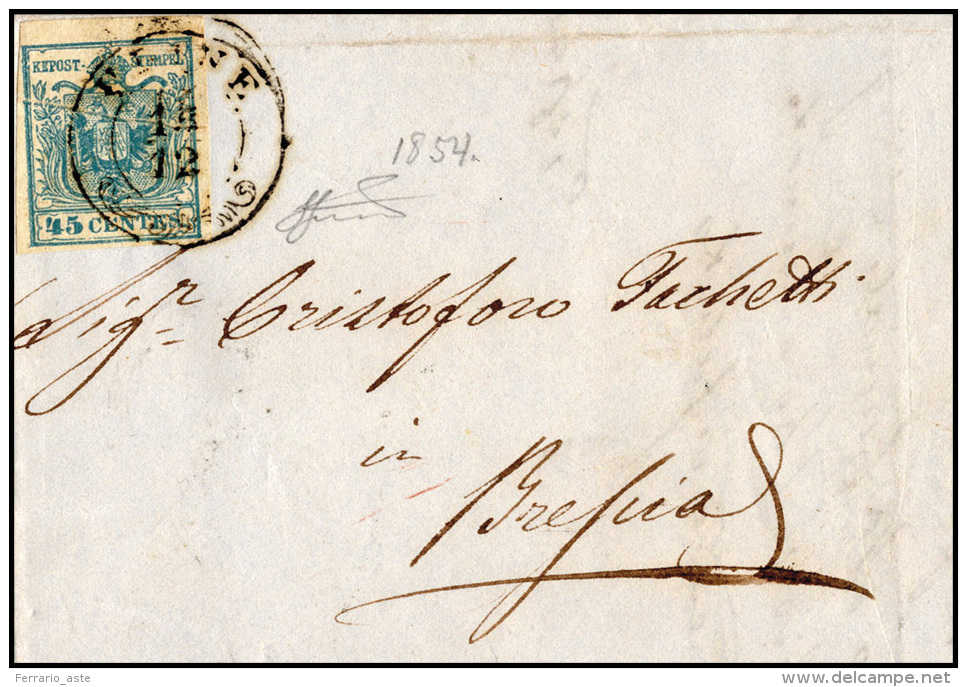 KKPOST-STEMPEL
14
12
45 CENTES
1854.
Sigr. Cristoforo Fachetti
in
Brescia
Ferrario_aste
delcampe.net